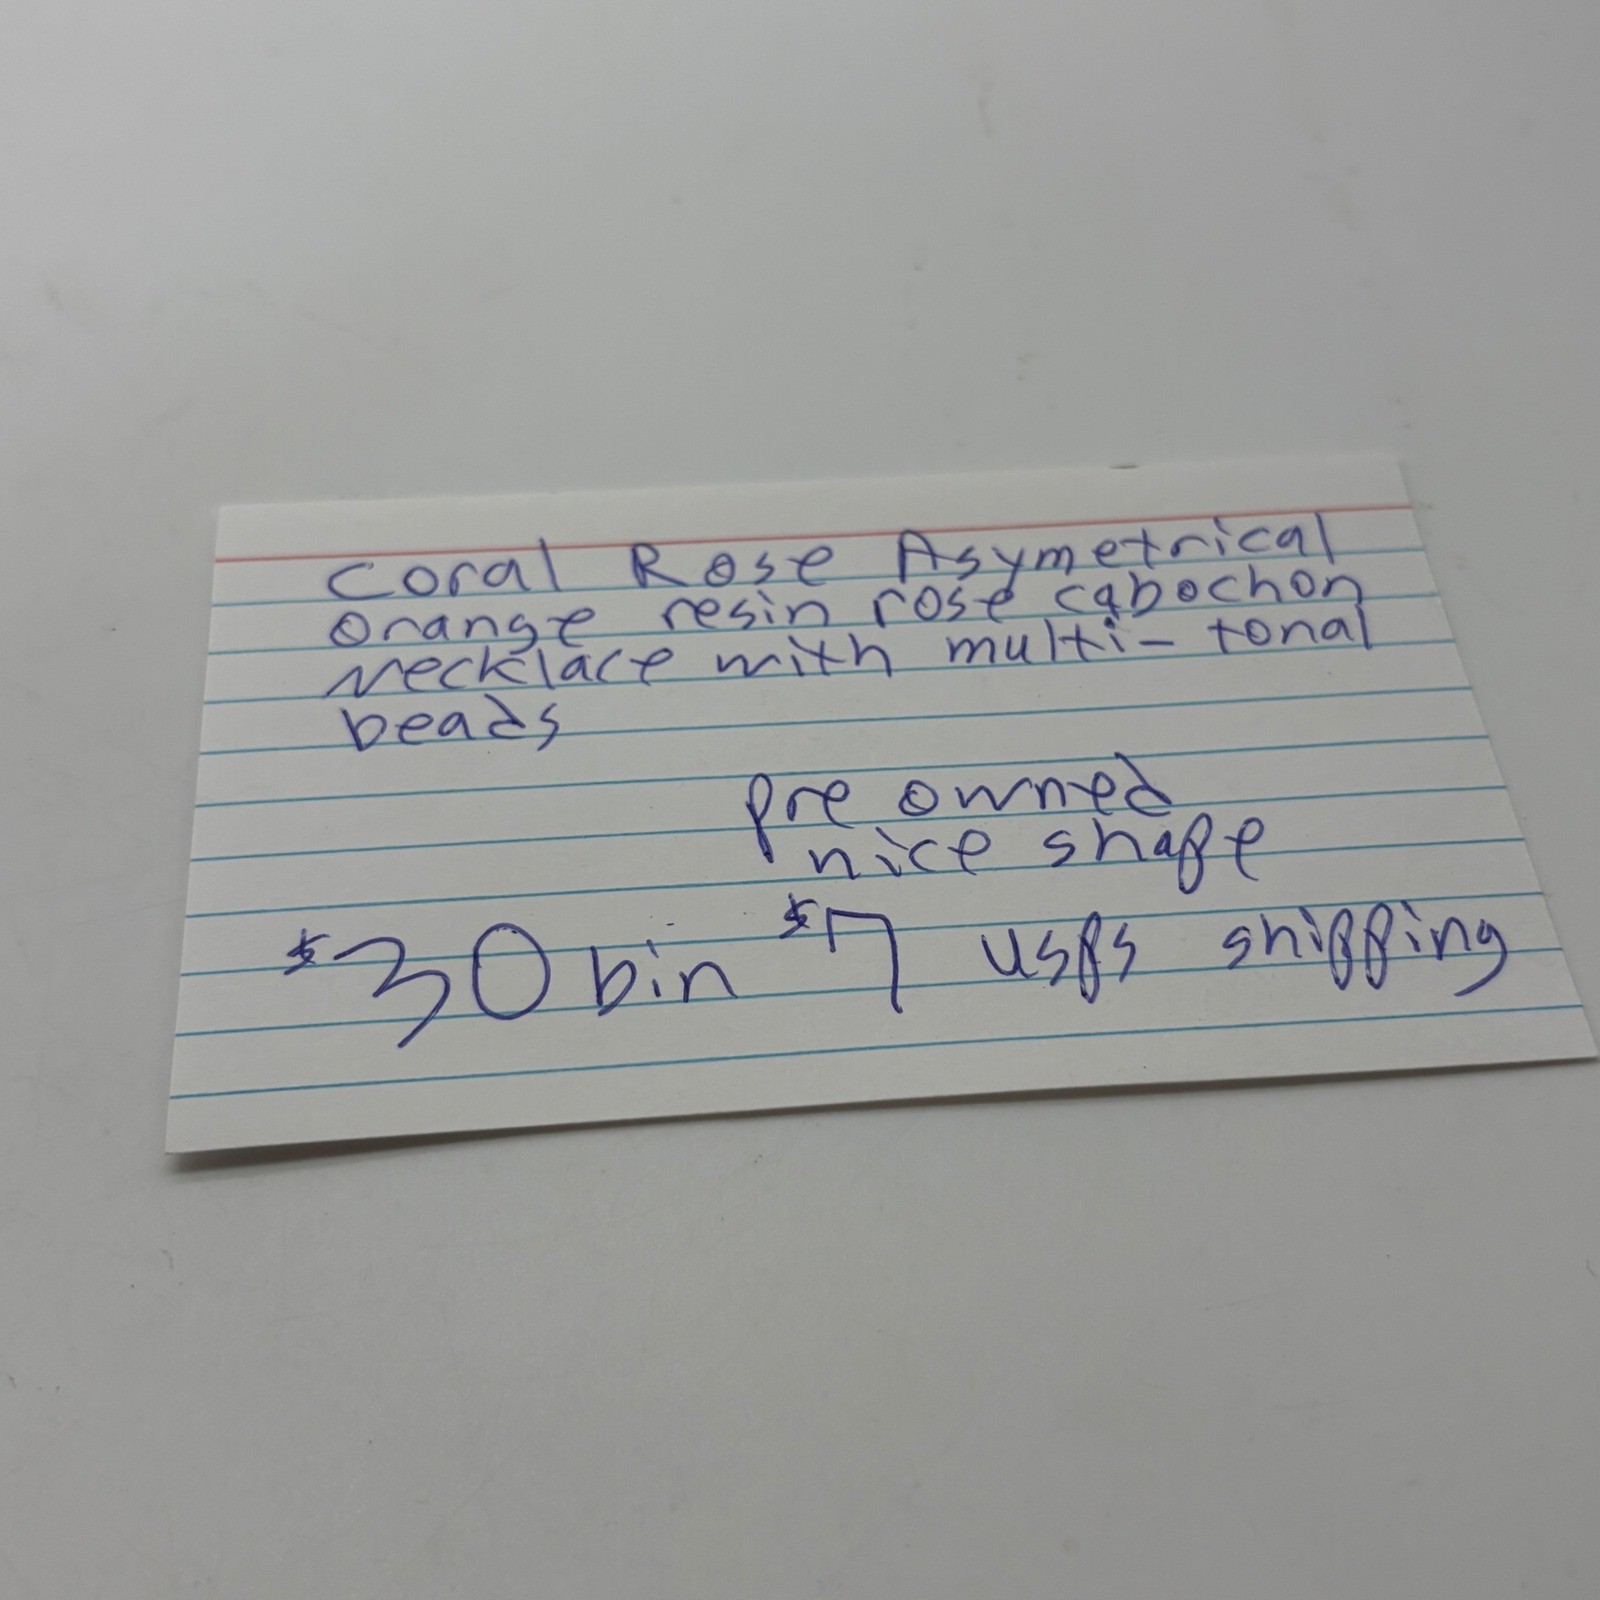 Coral Rose Asymetrical
Orange resin rose cabochon
Necklace with multi-tonal
beads
pre owned
nice shape
$30 bin $7 usps shipping